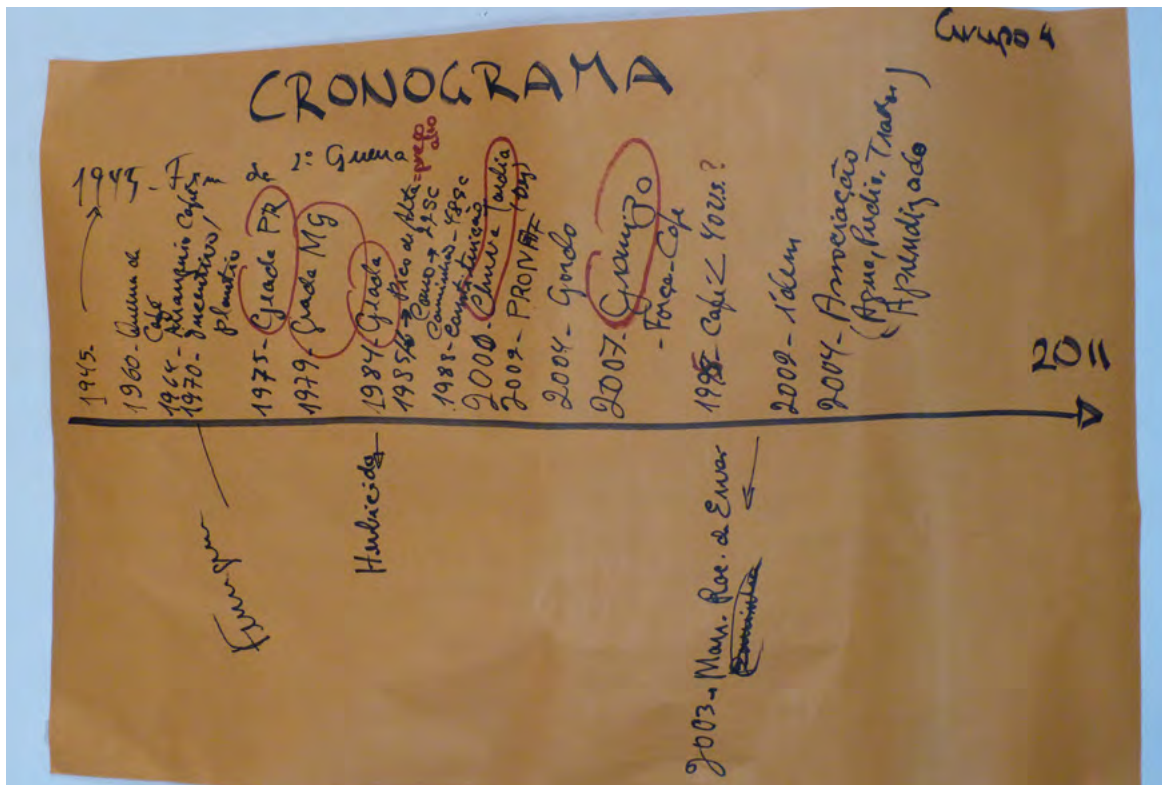 Grupo 1
CRONOGRAMA
1945
2ª Guerra
1945-
1960- Queima de
Café
1964- Arranquio Café
1970- Incentivo/
plantio
1975- Geada PR
1979- Geada MG
1984- Geada
1985/6 → Pico de Alta = preço
alto
Carro → 22 Sc
Caminhão - 48 Sc
1988- Constituição
2000- Chuva Tardia
2002- PRONAF
2004- Gordo
2007- Granizo
- Força-Café
Café < 40 US.?
2002- idem
2004- Associação
(Agua, Pulv., Trator)
Aprendizado
2011
Ferrugem
Herbicida
2003→ Maq. Roc. de Ervas